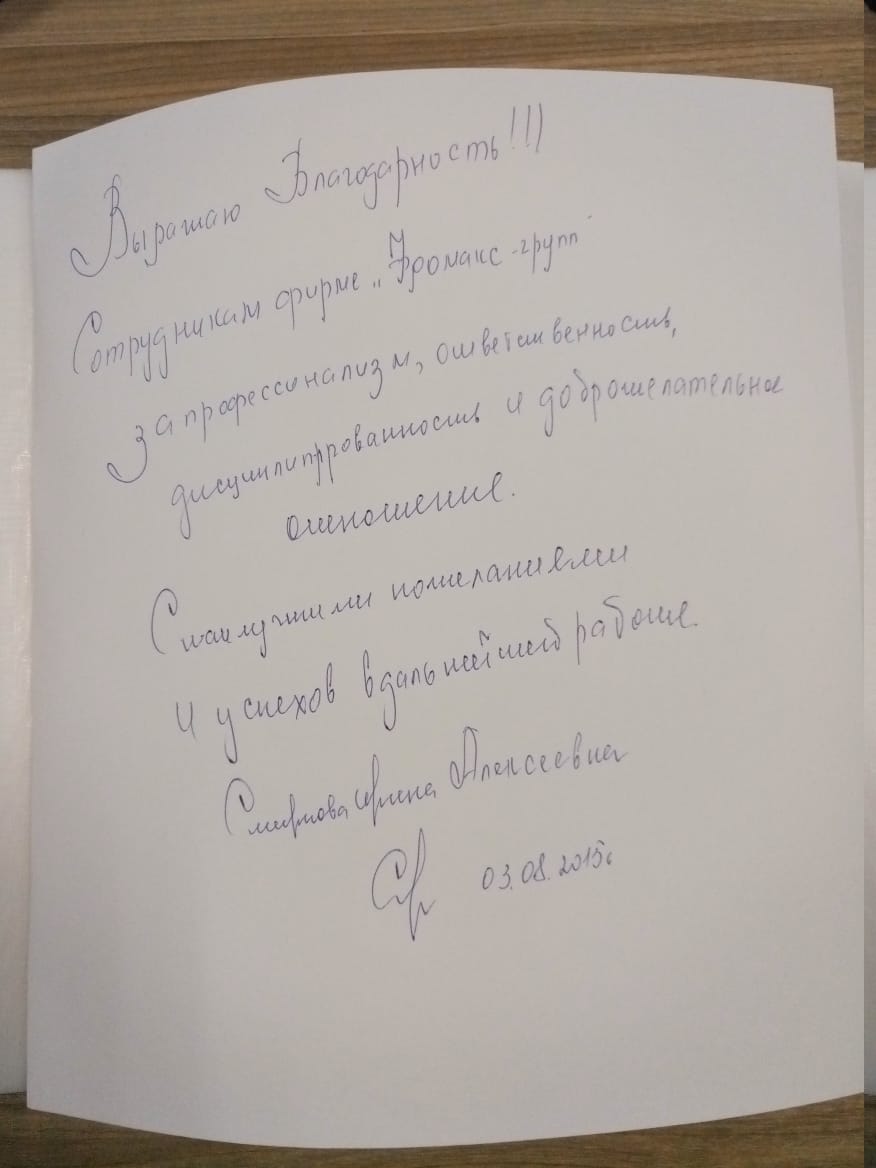 Выражаю Благодарность!!!
Сотрудникам фирме „Фромакс-групп"
за профессионализм, ответственность,
дисциплинированность и доброжелательное
отношение.
С наилучшими пожеланиями
и успехов в дальнейшей работе.
Смирнова Ирина Алексеевна
03.08.2015г